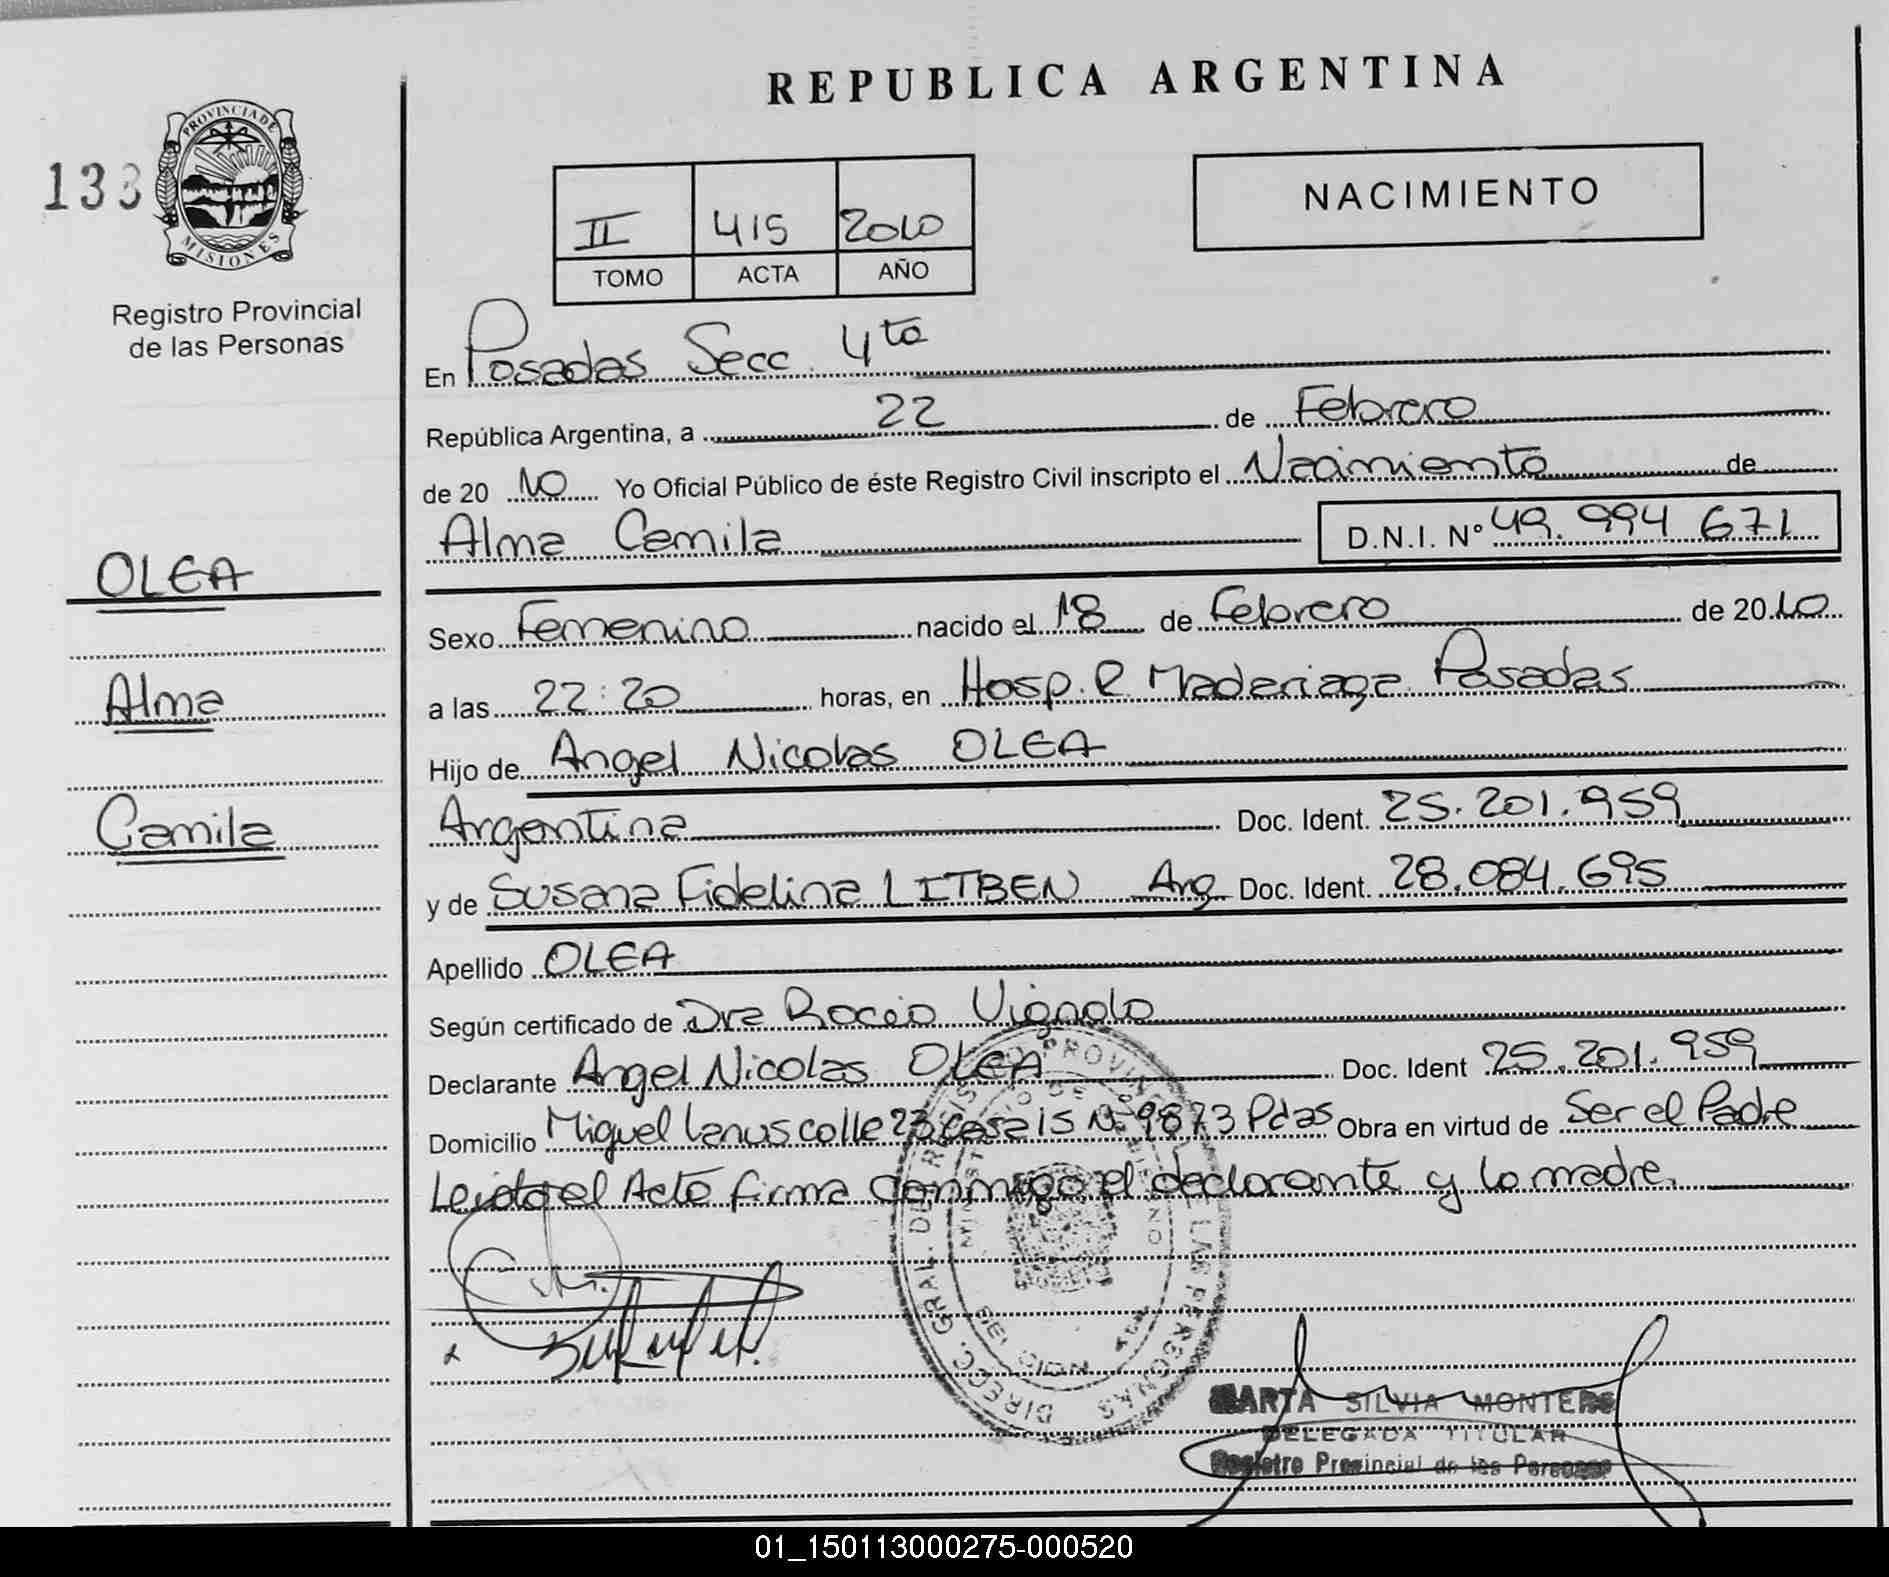 REPUBLICA ARGENTINA
133
PROVINCIA DE
MISIONES
Registro Provincial
de las Personas
II 415 2010
TOMO ACTA AÑO
NACIMIENTO
En Posadas Secc. 4ta
República Argentina, a 22 de Febrero
de 20 10 Yo Oficial Público de éste Registro Civil inscripto el Nacimiento de
Alma Camila D.N.I. Nº 49.994 671
OLEA
Alma
Camila
Sexo Femenino nacido el 18 de Febrero de 2010
a las 22:20 horas, en Hosp. R Madariaga Posadas
Hijo de Angel Nicolas OLEA
Argentina Doc. Ident. 25.201.959
y de Susana Fidelina LITBEN Arg Doc. Ident. 28.084.695
Apellido OLEA
Según certificado de Dra Rocio Vignolo
Declarante Angel Nicolas OLEA Doc. Ident 25.201.959
Domicilio Miguel Lanus calle 23 casa 15 Nº 9873 Pdas Obra en virtud de Ser el Padre
Leida el Acta firma conmigo el declarante y la madre.
DIRECC. GRAL. DEL REGISTRO PROVINCIAL DE LAS PERSONAS
MARTA SILVIA MONTERO
DELEGADA TITULAR
Registro Provincial de las Personas
01_150113000275-000520